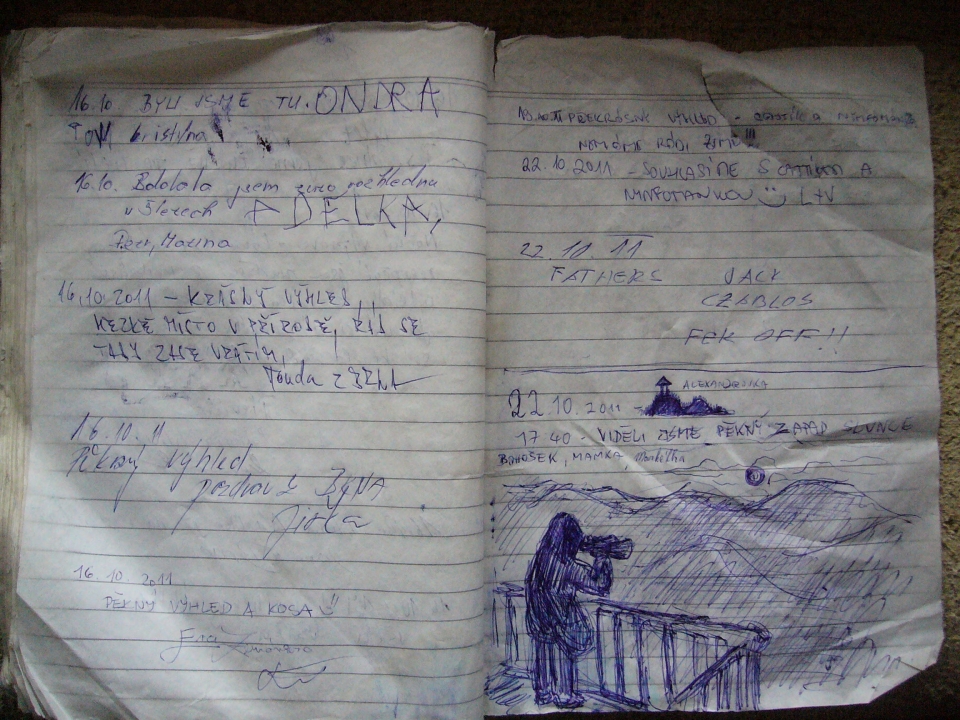 16.10 BYLI JSME TU. ONDRA
TOM kristýna
16.10. jsem rozhlednu
v Šlezech ADÉLKA,
Petr, Macina
16.10.2011 – KRÁSNÝ VÝHLED,
HEZKÉ MÍSTO V PŘÍRODĚ, RÁD SE
TADY ZASE VRÁTÍM,
Tonda Z BRNA
16.10.11
Pěkný výhled
pozdrav z BRNA
Jirka
16.10.2011
PĚKNÝ VÝHLED A KOSA
Eva
PŘEKRÁSNÝ VÝHLED –
NEMÁME RÁDI ZIMU!!!
22.10.2011 – SOUHLASÍME S A
L+V
22.10.11
FATHERS JACK
CZABLOS
FEK OFF!!
ALEXANDROVKA
22.10.2011
17 40 – VIDĚLI JSME PĚKNÝ ZÁPAD SLUNCE
MAMKA,